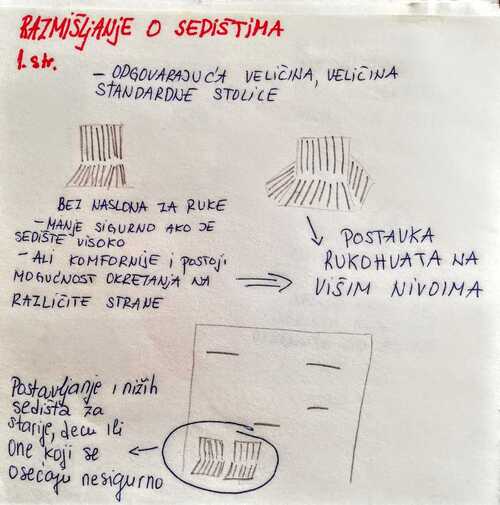 RAZMIŠLJANJE O SEDIŠTIMA
1. str.
– ODGOVARAJUĆA VELIČINA, VELIČINA
STANDARDNE STOLICE
BEZ NASLONA ZA RUKE
– MANJE SIGURNO AKO JE
SEDIŠTE VISOKO
– ALI KOMFORNIJE I POSTOJI
MOGUĆNOST OKRETANJA NA
RAZLIČITE STRANE
POSTAVKA
RUKOHVATA NA
VIŠIM NIVOIMA
Postavljanje i nižih
sedišta za
starije, decu ili
One koji se
osećaju nesigurno